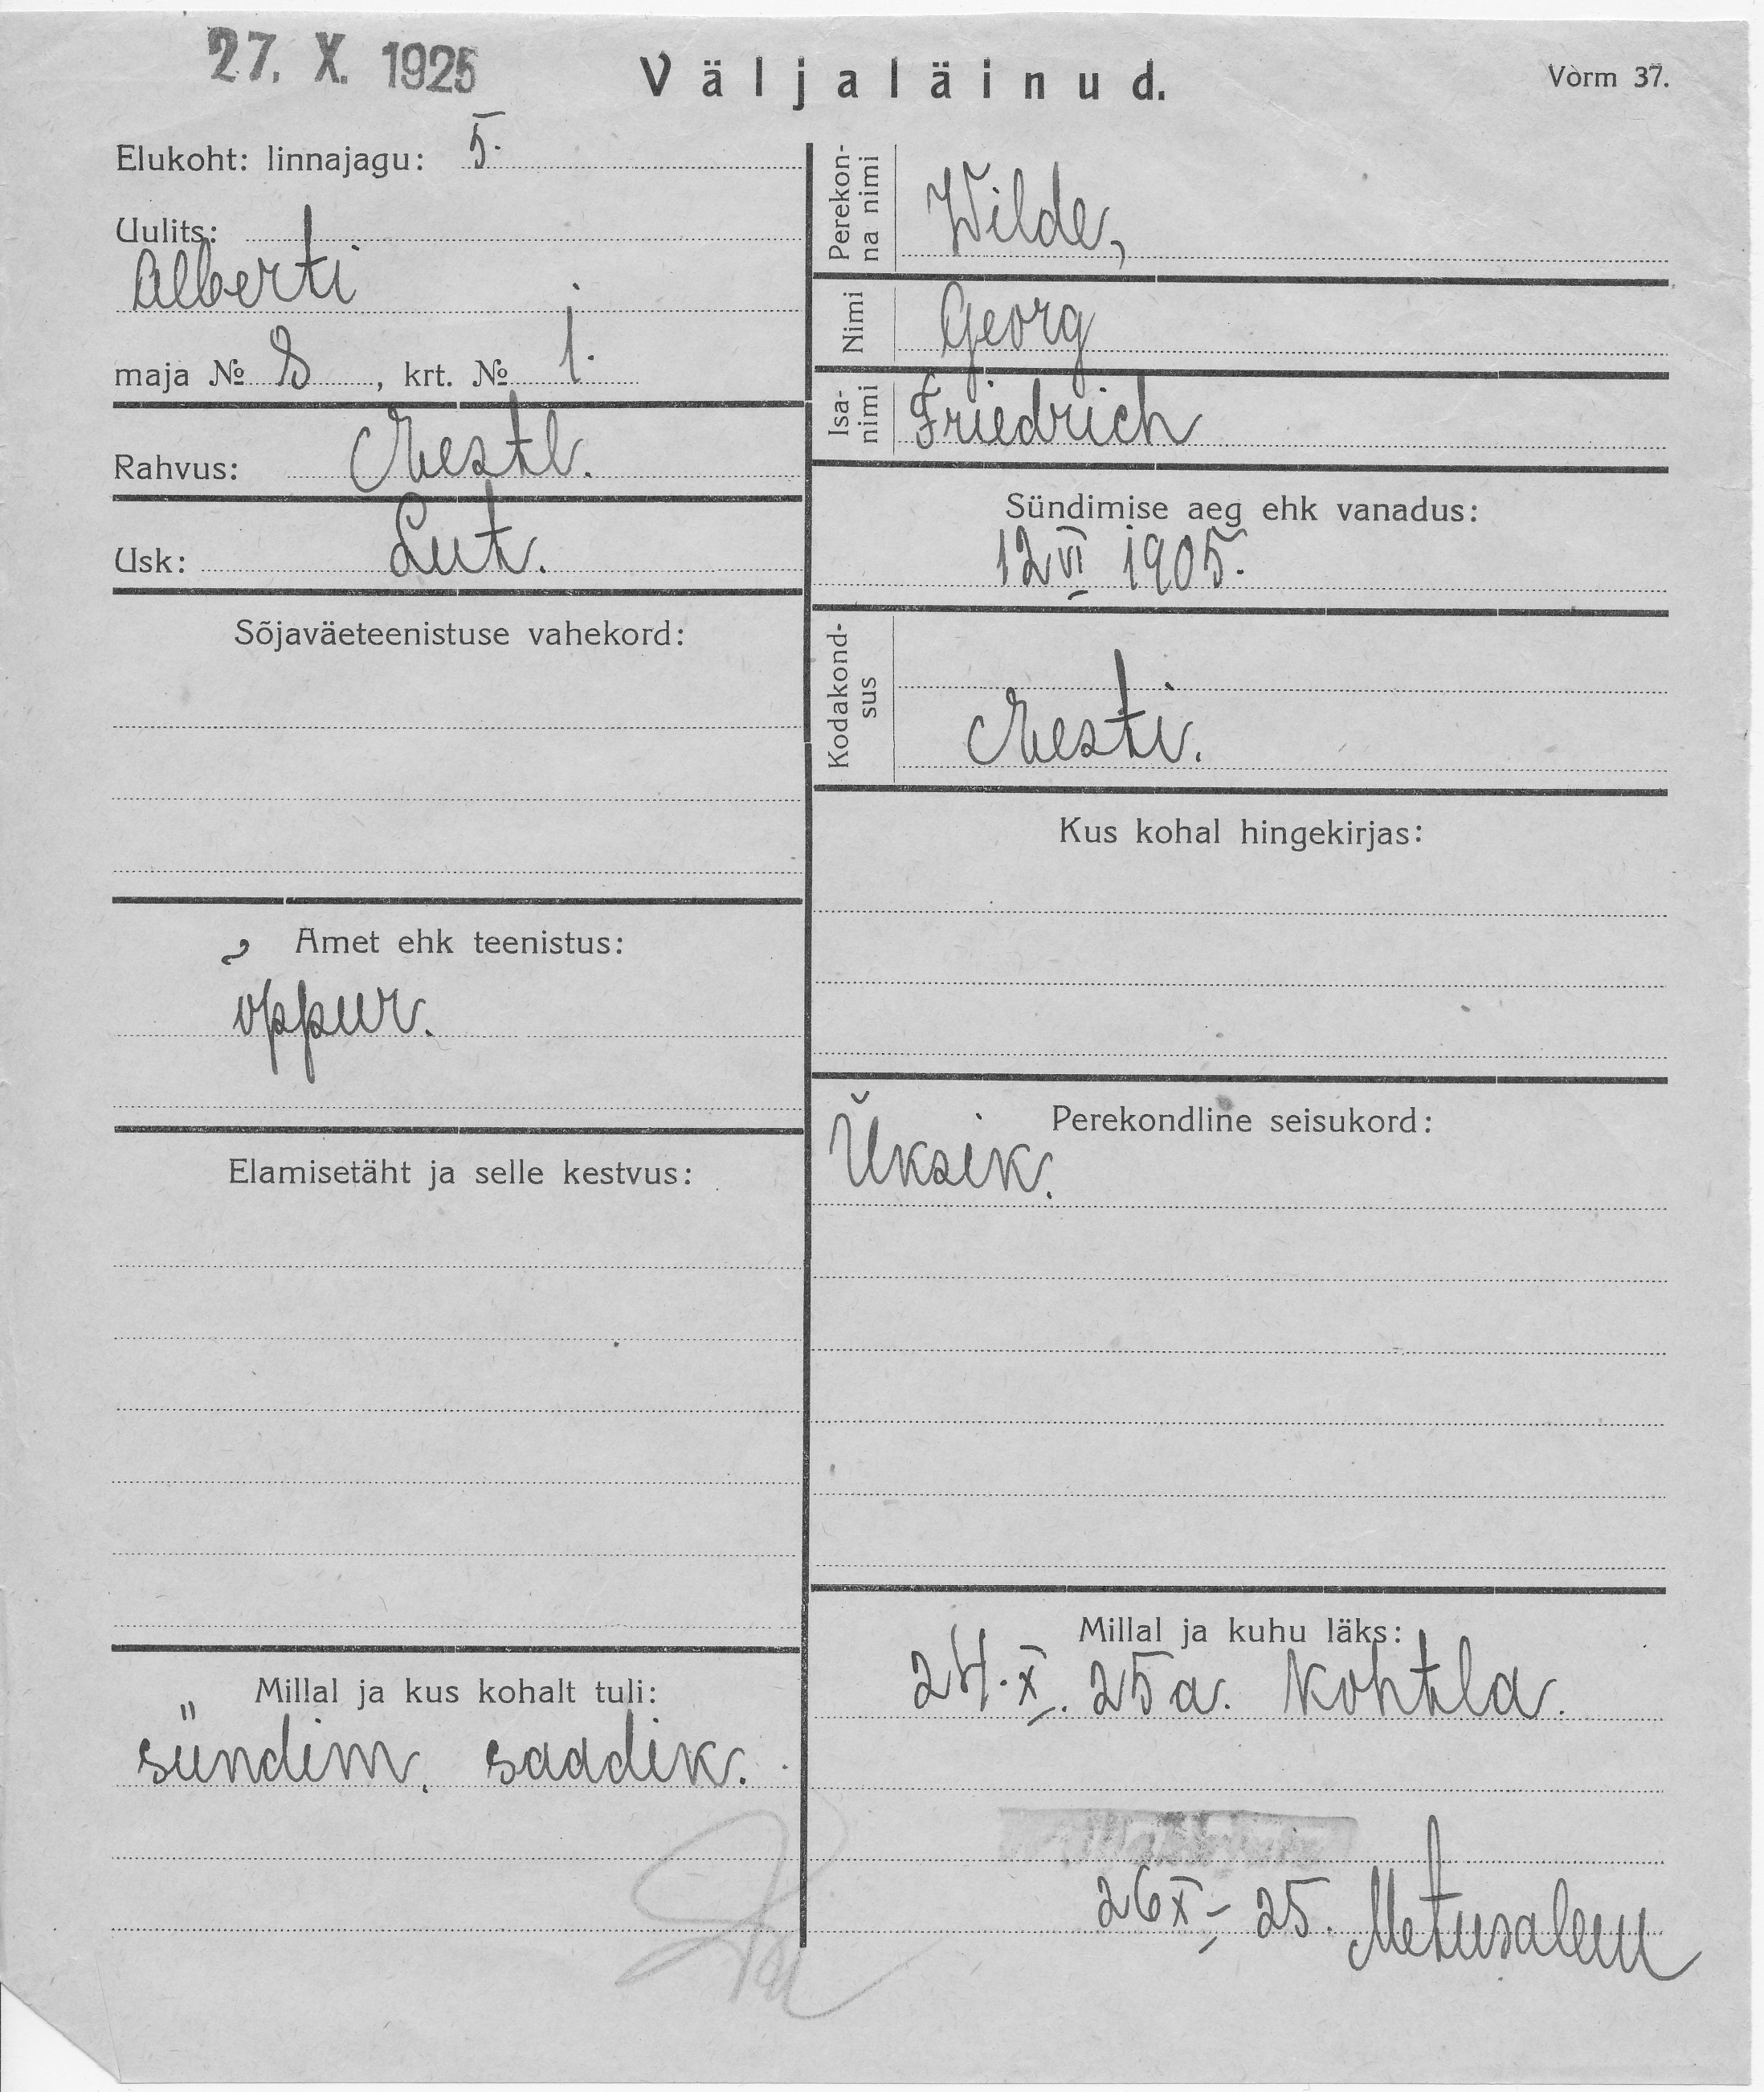 27. X. 1925
Väljaläinud.
Vorm 37.
Elukoht: linnajagu: 5.
Uulits:
Alberti
maja № 8, krt. № 1.
Rahvus: Eestl.
Usk: Lut.
Sõjaväeteenistuse vahekord:
Amet ehk teenistus:
õppur.
Elamisetäht ja selle kestvus:
Millal ja kus kohalt tuli:
sündim. saadik.
Perekon-
na nimi
Wilde,
Nimi Georg
Isa-
nimi
Friedrich
Sündimise aeg ehk vanadus:
12 VI 1905.
Kodakond-
sus
Eesti.
Kus kohal hingekirjas:
Perekondline seisukord:
Üksik.
Millal ja kuhu läks:
24. X. 25 a. Kohtla.
26 X – 25. Metusalem